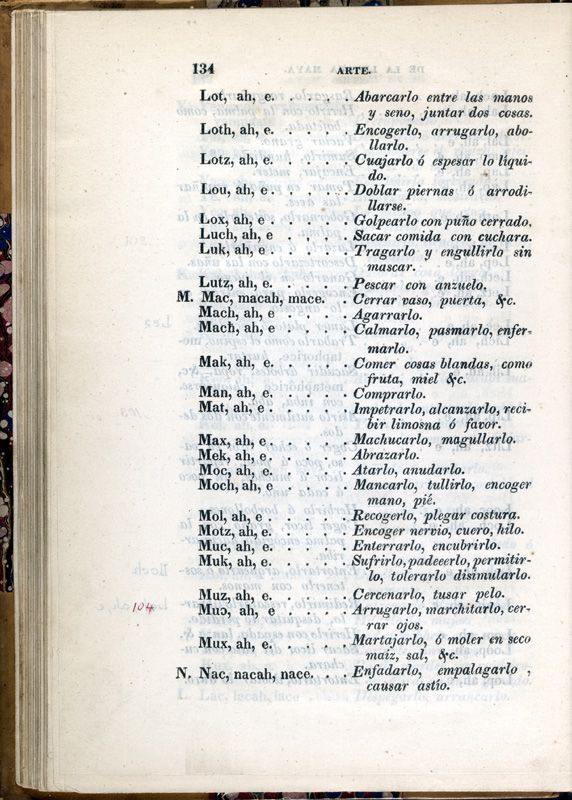 134 ARTE.
Lot, ah, e. . . . . Abarcarlo entre las manos
y seno, juntar dos cosas.
Loth, ah, e. . . . . Encogerlo, arrugarlo, abo-
llarlo.
Lotz, ah, e. . . . . Cuajarlo ó espesar lo líqui-
do.
Lou, ah, e . . . . . Doblar piernas ó arrodi-
llarse.
Lox, ah, e . . . . . Golpearlo con puño cerrado.
Luch, ah, e . . . . Sacar comida con cuchara.
Luk, ah, e . . . . . Tragarlo y engullirlo sin
mascar.
Lutz, ah, e. . . . . Pescar con anzuelo.
M. Mac, macah, mace. . Cerrar vaso, puerta, &c.
Mach, ah, e . . . . Agarrarlo.
Macħ, ah, e . . . . Calmarlo, pasmarlo, enfer-
marlo.
Mak, ah, e. . . . . Comer cosas blandas, como
fruta, miel &c.
Man, ah, e . . . . . Comprarlo.
Mat, ah, e . . . . . Impetrarlo, alcanzarlo, reci-
bir limosna ó favor.
Max, ah, e . . . . . Machucarlo, magullarlo.
Mek, ah, e . . . . . Abrazarlo.
Moc, ah, e. . . . . Atarlo, anudarlo.
Moch, ah, e . . . . Mancarlo, tullirlo, encoger
mano, pié.
Mol, ah, e . . . . . Recogerlo, plegar costura.
Motz, ah, e. . . . . Encoger nervio, cuero, hilo.
Muc, ah, e. . . . . Enterrarlo, encubrirlo.
Muk, ah, e. . . . . Sufrirlo, padeeerlo, permitir-
lo, tolerarlo disimularlo.
Muz, ah, e. . . . . Cercenarlo, tusar pelo.
104 Muɔ, ah, e . . . . Arrugarlo, marchitarlo, cer-
rar ojos.
Mux, ah, e. . . . . Martajarlo, ó moler en seco
maiz, sal, &c.
N. Nac, nacah, nace. . . Enfadarlo, empalagarlo ,
causar astío.